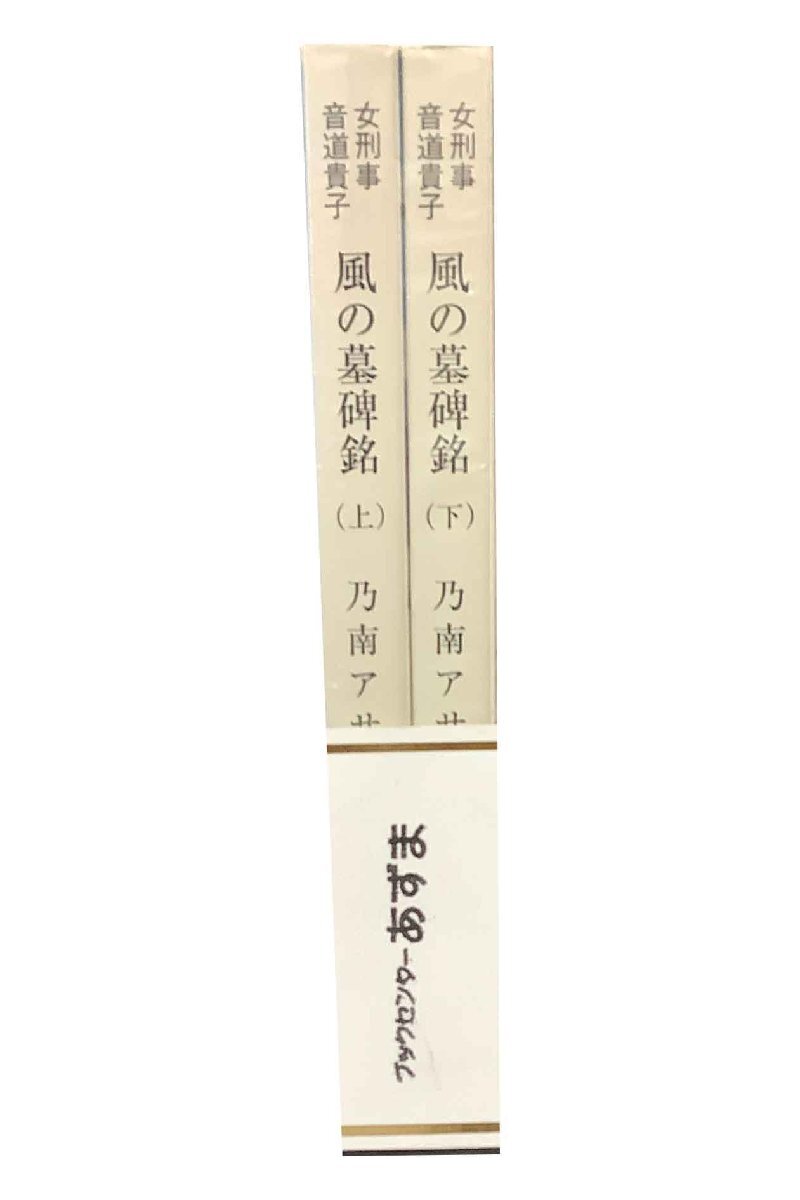 女刑事
音道貴子
風の墓碑銘（上）
乃南アサ
女刑事
音道貴子
風の墓碑銘（下）
乃南アサ
ブックセンターあずま